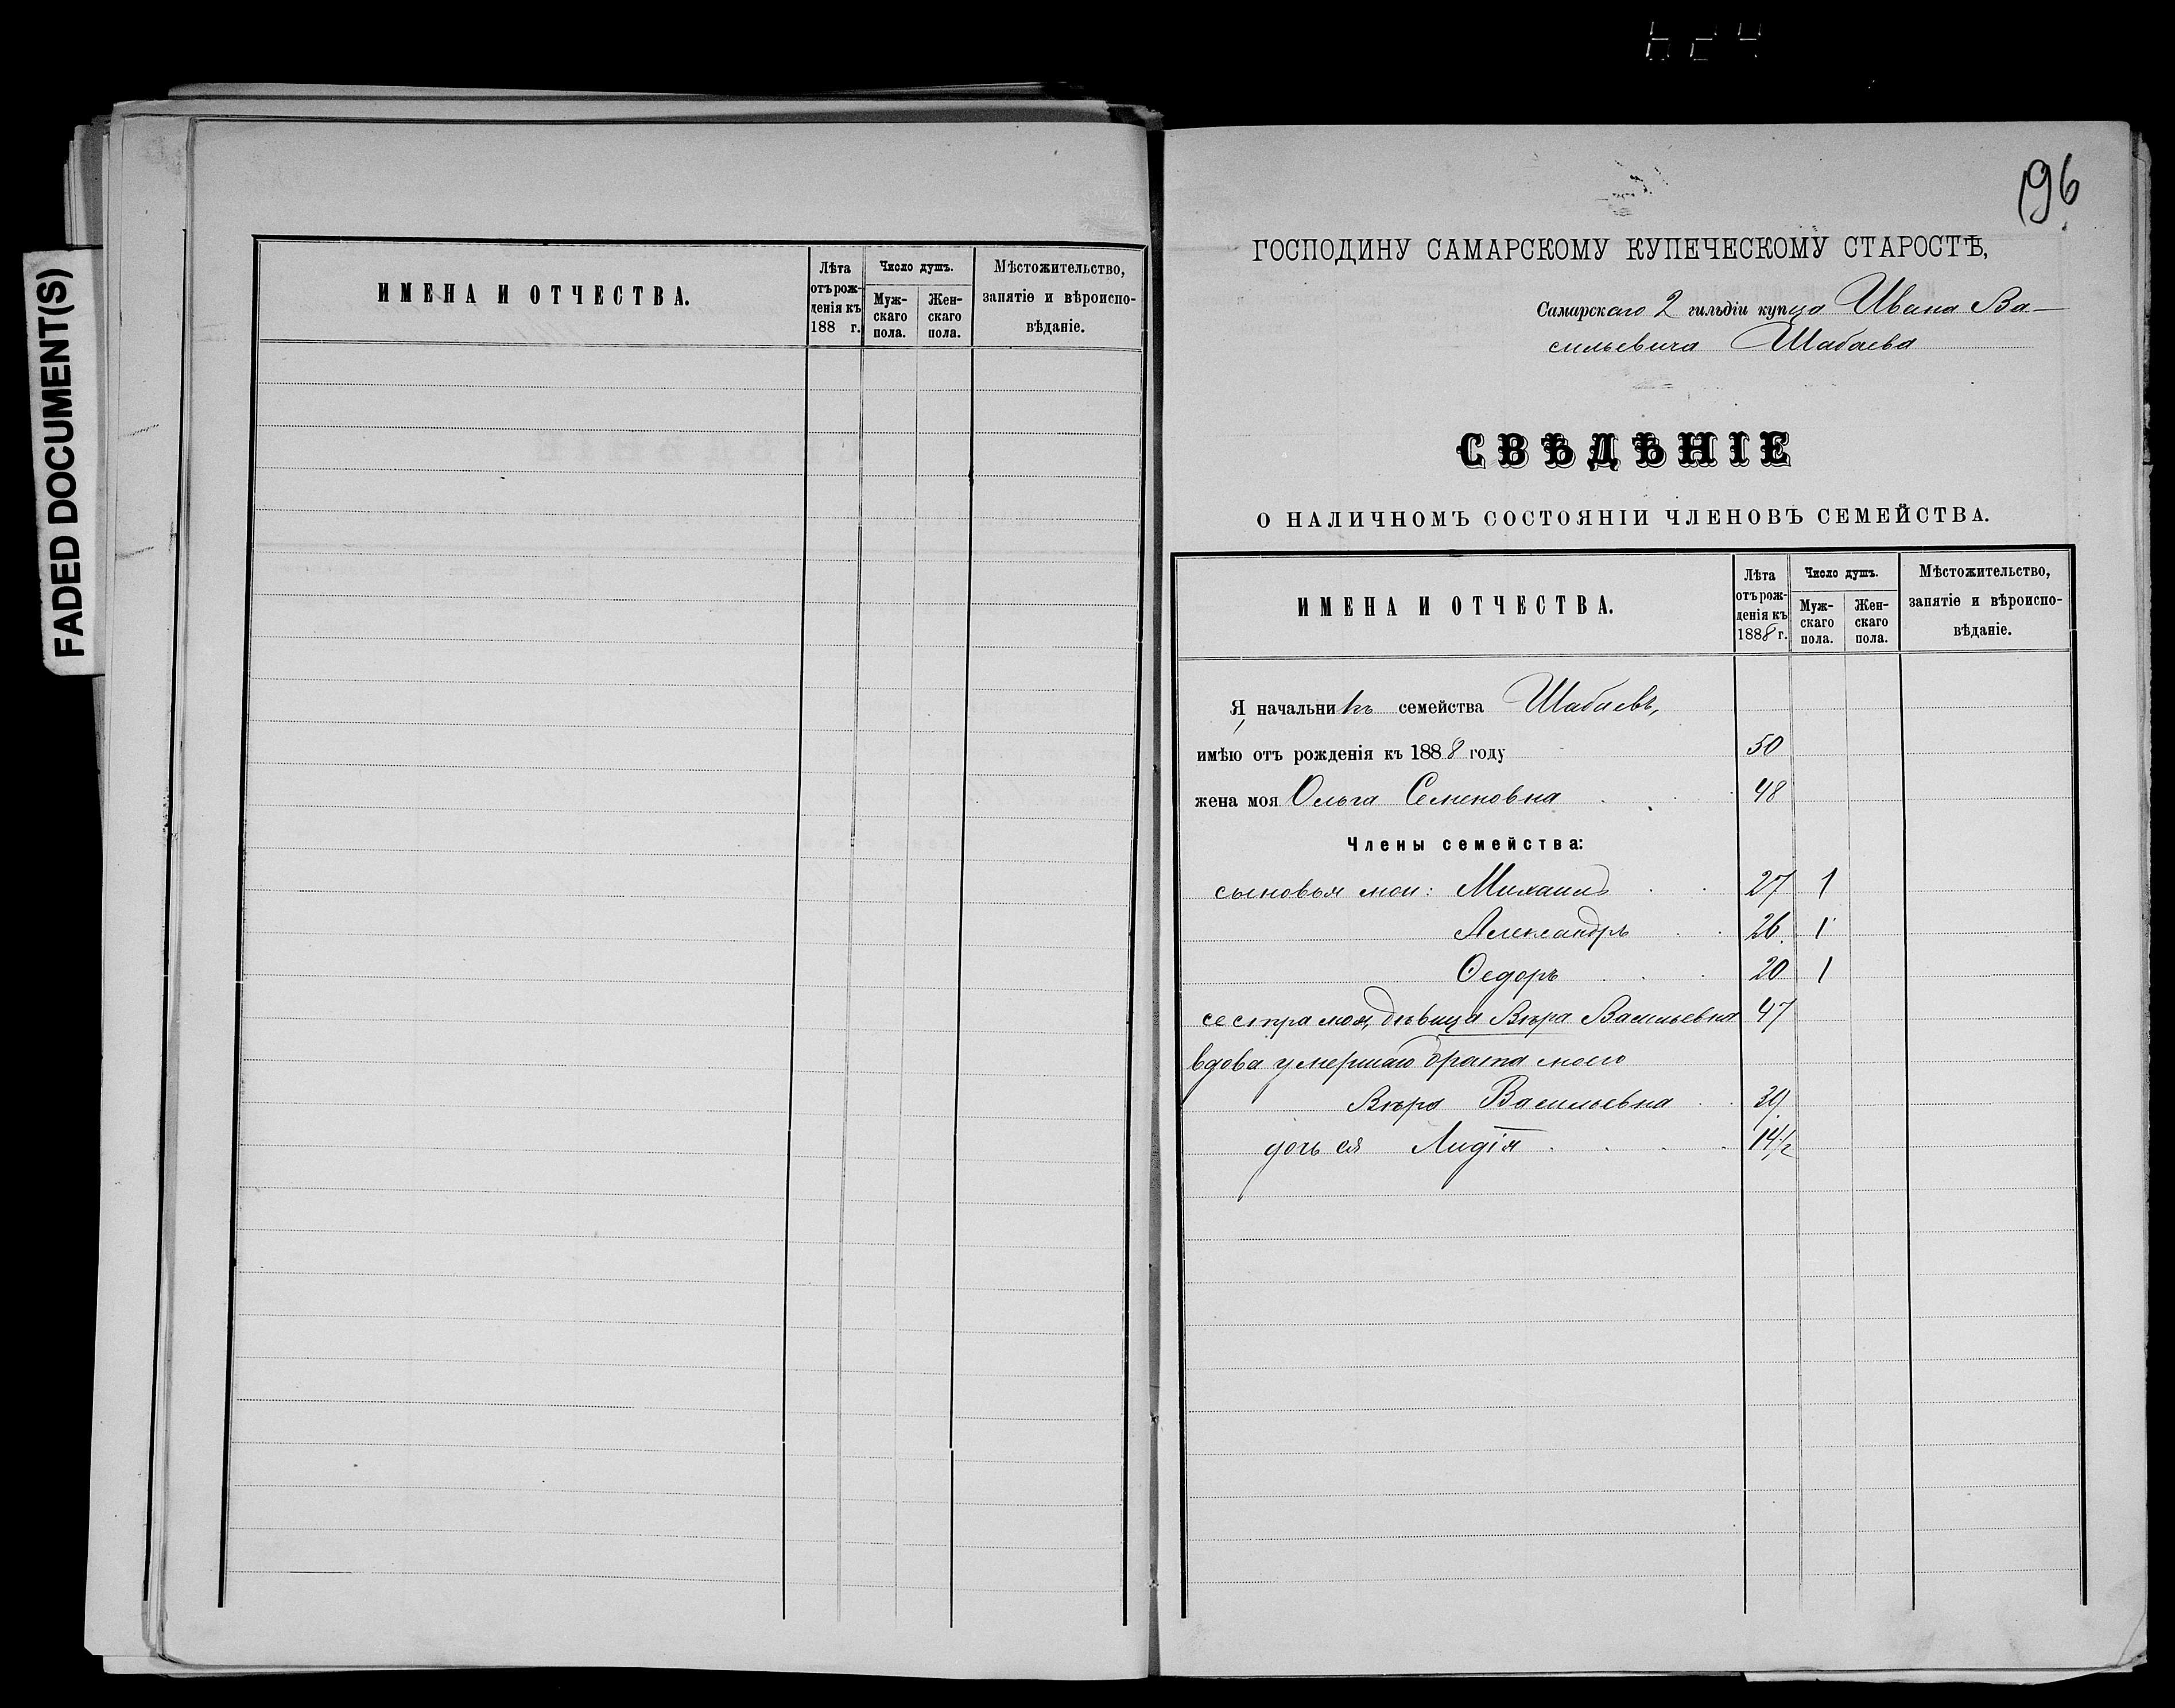 FADED DOCUMENT(S)
ИМЕНА И ОТЧЕСТВА.
Лѣта отъ рожденія къ 188 г.
Число душъ.
Мужскаго пола.
Женскаго пола.
Мѣстожительство, занятіе и вѣроисповѣданіе.
196
ГОСПОДИНУ САМАРСКОМУ КУПЕЧЕСКОМУ СТАРОСТѢ,
Самарскаго 2 гильдіи купца Ивана Ва-
сильевича Шабаева
СВѢДѢНІЕ
О НАЛИЧНОМЪ СОСТОЯНІИ ЧЛЕНОВЪ СЕМЕЙСТВА.
ИМЕНА И ОТЧЕСТВА.
Лѣта отъ рожденія къ 1888 г.
Число душъ.
Мужскаго пола.
Женскаго пола.
Мѣстожительство, занятіе и вѣроисповѣданіе.
Я начальникъ семейства Шабаевъ,
имѣю отъ рожденія къ 1888 году 50
жена моя Ольга Семеновна 48
Члены семейства:
сыновья мои: Михаилъ 27 1
Александръ 26 1
Ѳедоръ 20 1
сестра моя, дѣвица Вѣра Васильевна 47
вдова умершаго брата моего
Вѣра Васильевна 39
дочь ея Лидія 14 1/2